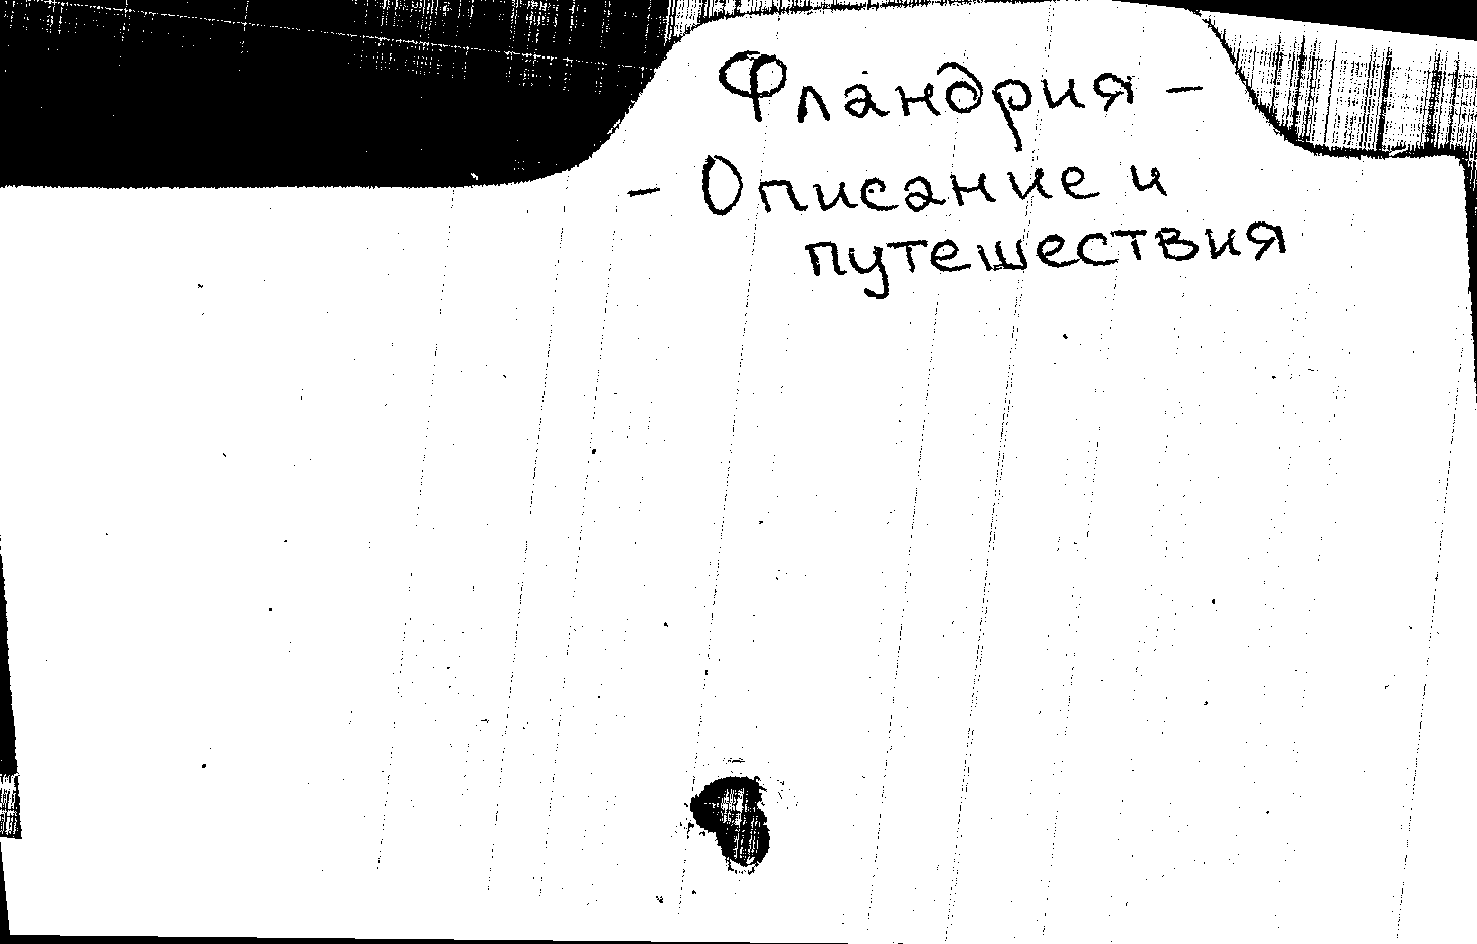 Фландрия –
– Описание и
путешествия